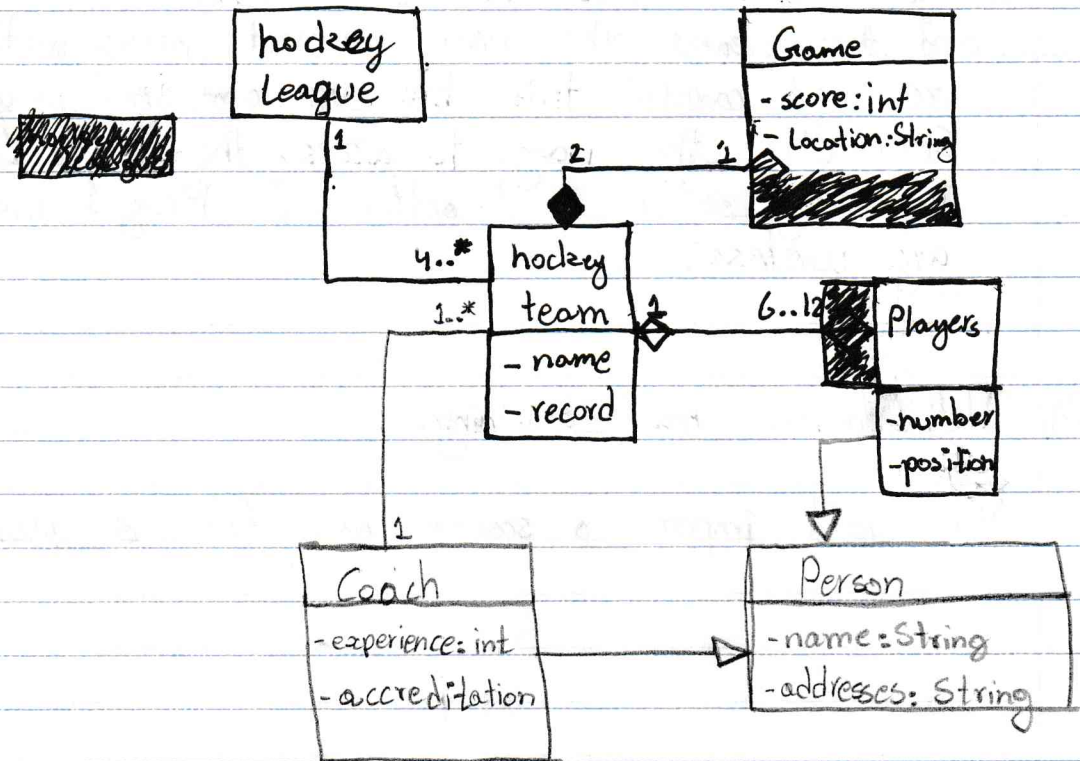 hockey
League
1
Game
- score: int
- Location: String
2
1
4..*
hockey
team
- name
- record
1..*
1
6..12
Players
-number
-position
1
Coach
-experience: int
-accreditation
Person
-name: String
-addresses: String